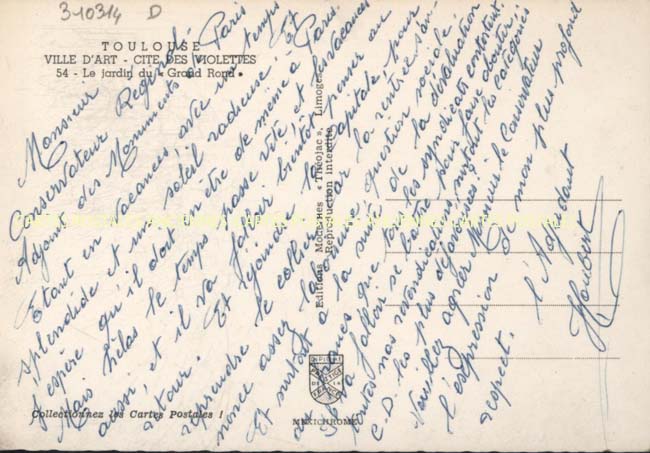 3-10314 D
TOULOUSE
VILLE D'ART - CITE DES VIOLETTES
54 - Le jardin du « Grand Rond »
Monsieur
Conservateur Régional
Adjoint des Monuments de Paris
Etant en vacances, avec un temps
splendide et un soleil radieuse. Et
j'espère qu'il doit en être de même à Paris.
Mais hélas le temps passe vite, et les vacances
aussi, et il va falloir bientôt penser au
retour. Et rejoindre la Capitale pour
reprendre le collier, car la rentrée s'an-
nonce assez question sociale.
Et surtout à la suite de la dévaluation
du que tous les syndicats contestent
Il va falloir se battre pour faire aboutir
toutes nos revendications, surtout les catégories
C.D. les plus défavorisées.
Veuillez agréer Monsieur le Conservateur
l'expression de mon plus profond
respect.
l'Adjudant
Houbert
Editions Modernes « Théojac », Limoges
Reproduction interdite
Collectionnez les Cartes Postales !
MEXICHROME